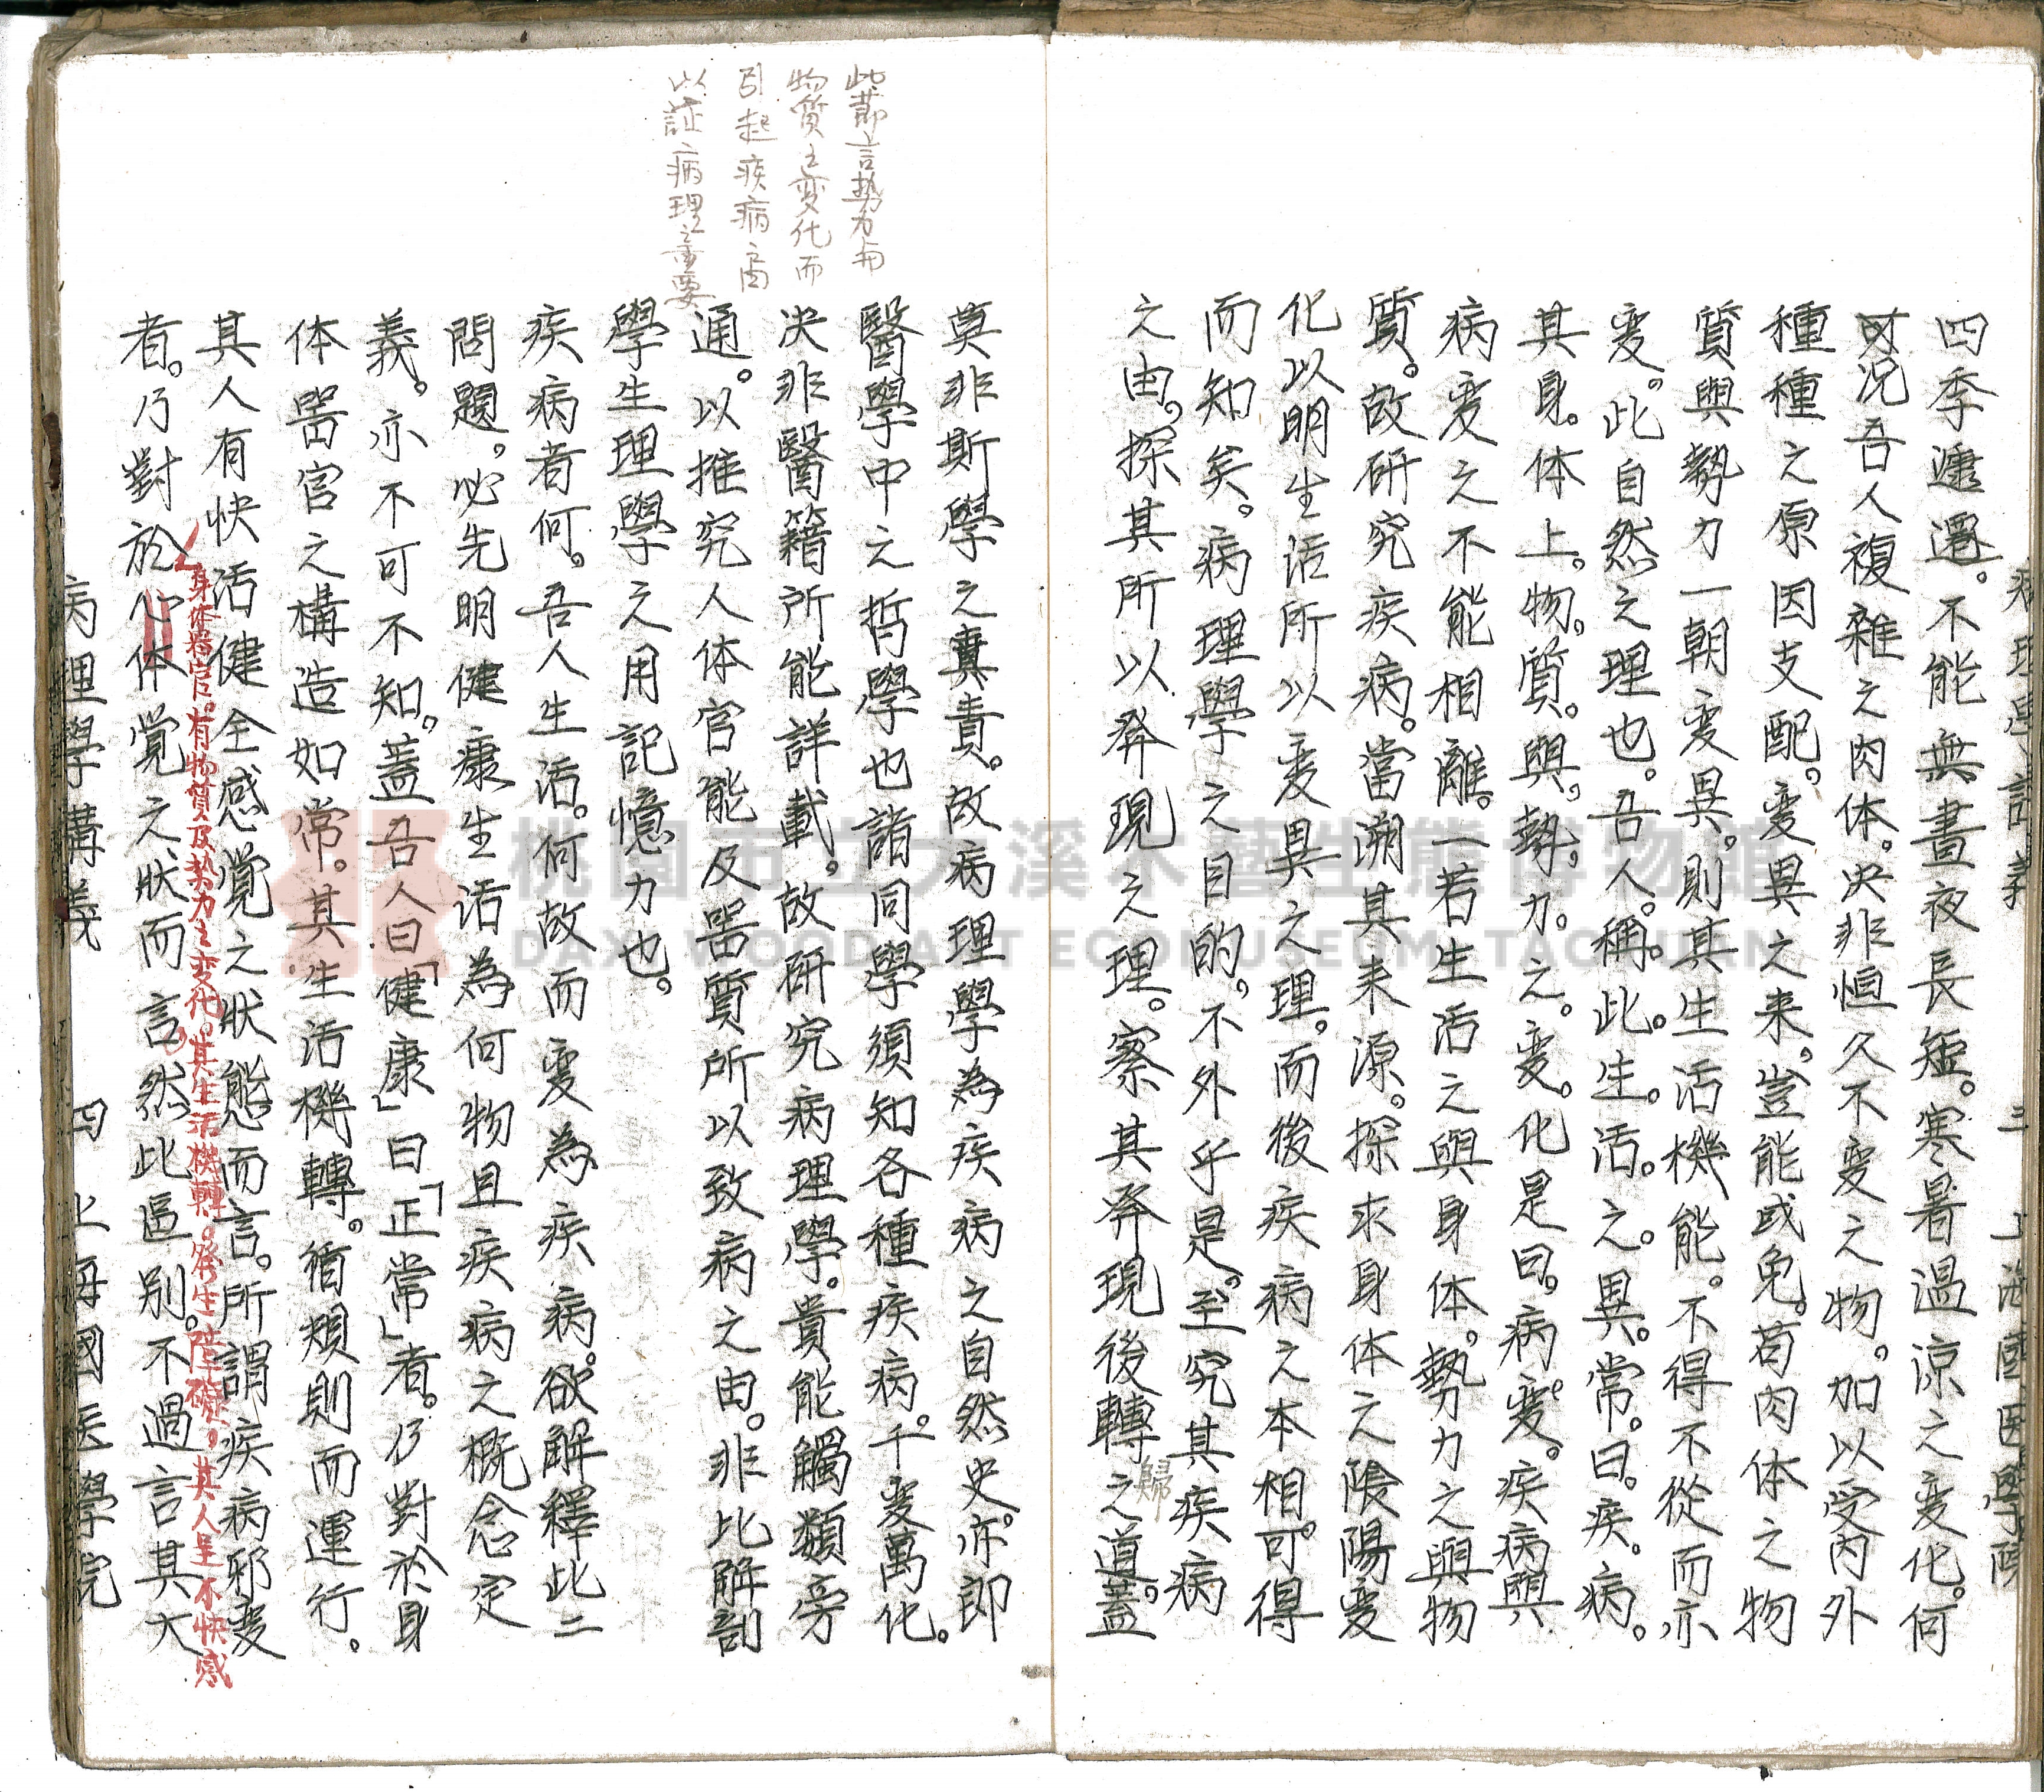 病理學講義 三 上海國医學院
四季遷。不能無晝夜長短。寒暑温涼之变化。何
况吾人複雜之肉体。决非恒久不变之物。加以受内外
種種之原因支配。变異之来。豈能或免。苟肉体之物
質與勢力一朝变異。則其生活機能。不得不從而亦
变。此自然之理也。吾人。稱。此。生。活。之。異。常。曰。疾。病。
其身。体上。物。質。與。勢。力。之。变。化是曰。病变。疾病與
病变之不能相離。一若生活之與身体。勢力之與物
質。故研究疾病。當溯其来源。探求身体之陰陽变
化以明生活所以变異之理。而後疾病之本相。可得
而知矣。病理學之目的。不外乎是。至究其疾病
之由。探其所以発現之理。察其発現後轉之道。蓋
歸
此節言勢力与
物質之变化而
引起疾病之因
以証病理之重要
莫非斯學之責。故病理學為疾病之自然史。亦即
醫學中之哲學也諸同學須知各種疾病。千变萬化。
决非醫籍所能詳載。故研究病理學。貴能觸類旁
通。以推究人体官能及噐質所以致病之由。非比解剖
學生理學之用記憶力也。
疾病者何。吾人生活。何故而变為疾病。欲解釋此二
問題。必先明健康生活為何物且疾病之概念定
義。亦不可不知。蓋吾人曰「健康」曰「正常」者。乃對於身
体噐官之構造如常。其生活機轉。循規則而運行。
其人有快活健全感覚之状態而言。所謂疾病邪变
身体器官。有物質及势力之变化。其生活機轉。発生障礙。其人呈不快感
者。乃對於心体覚之状而言然此區别。不過言其大
病理學講義 四 上海國医學院
桃園市立大溪木藝生態博物館
DAXI WOOD ART ECOMUSEUM, TAOYUAN